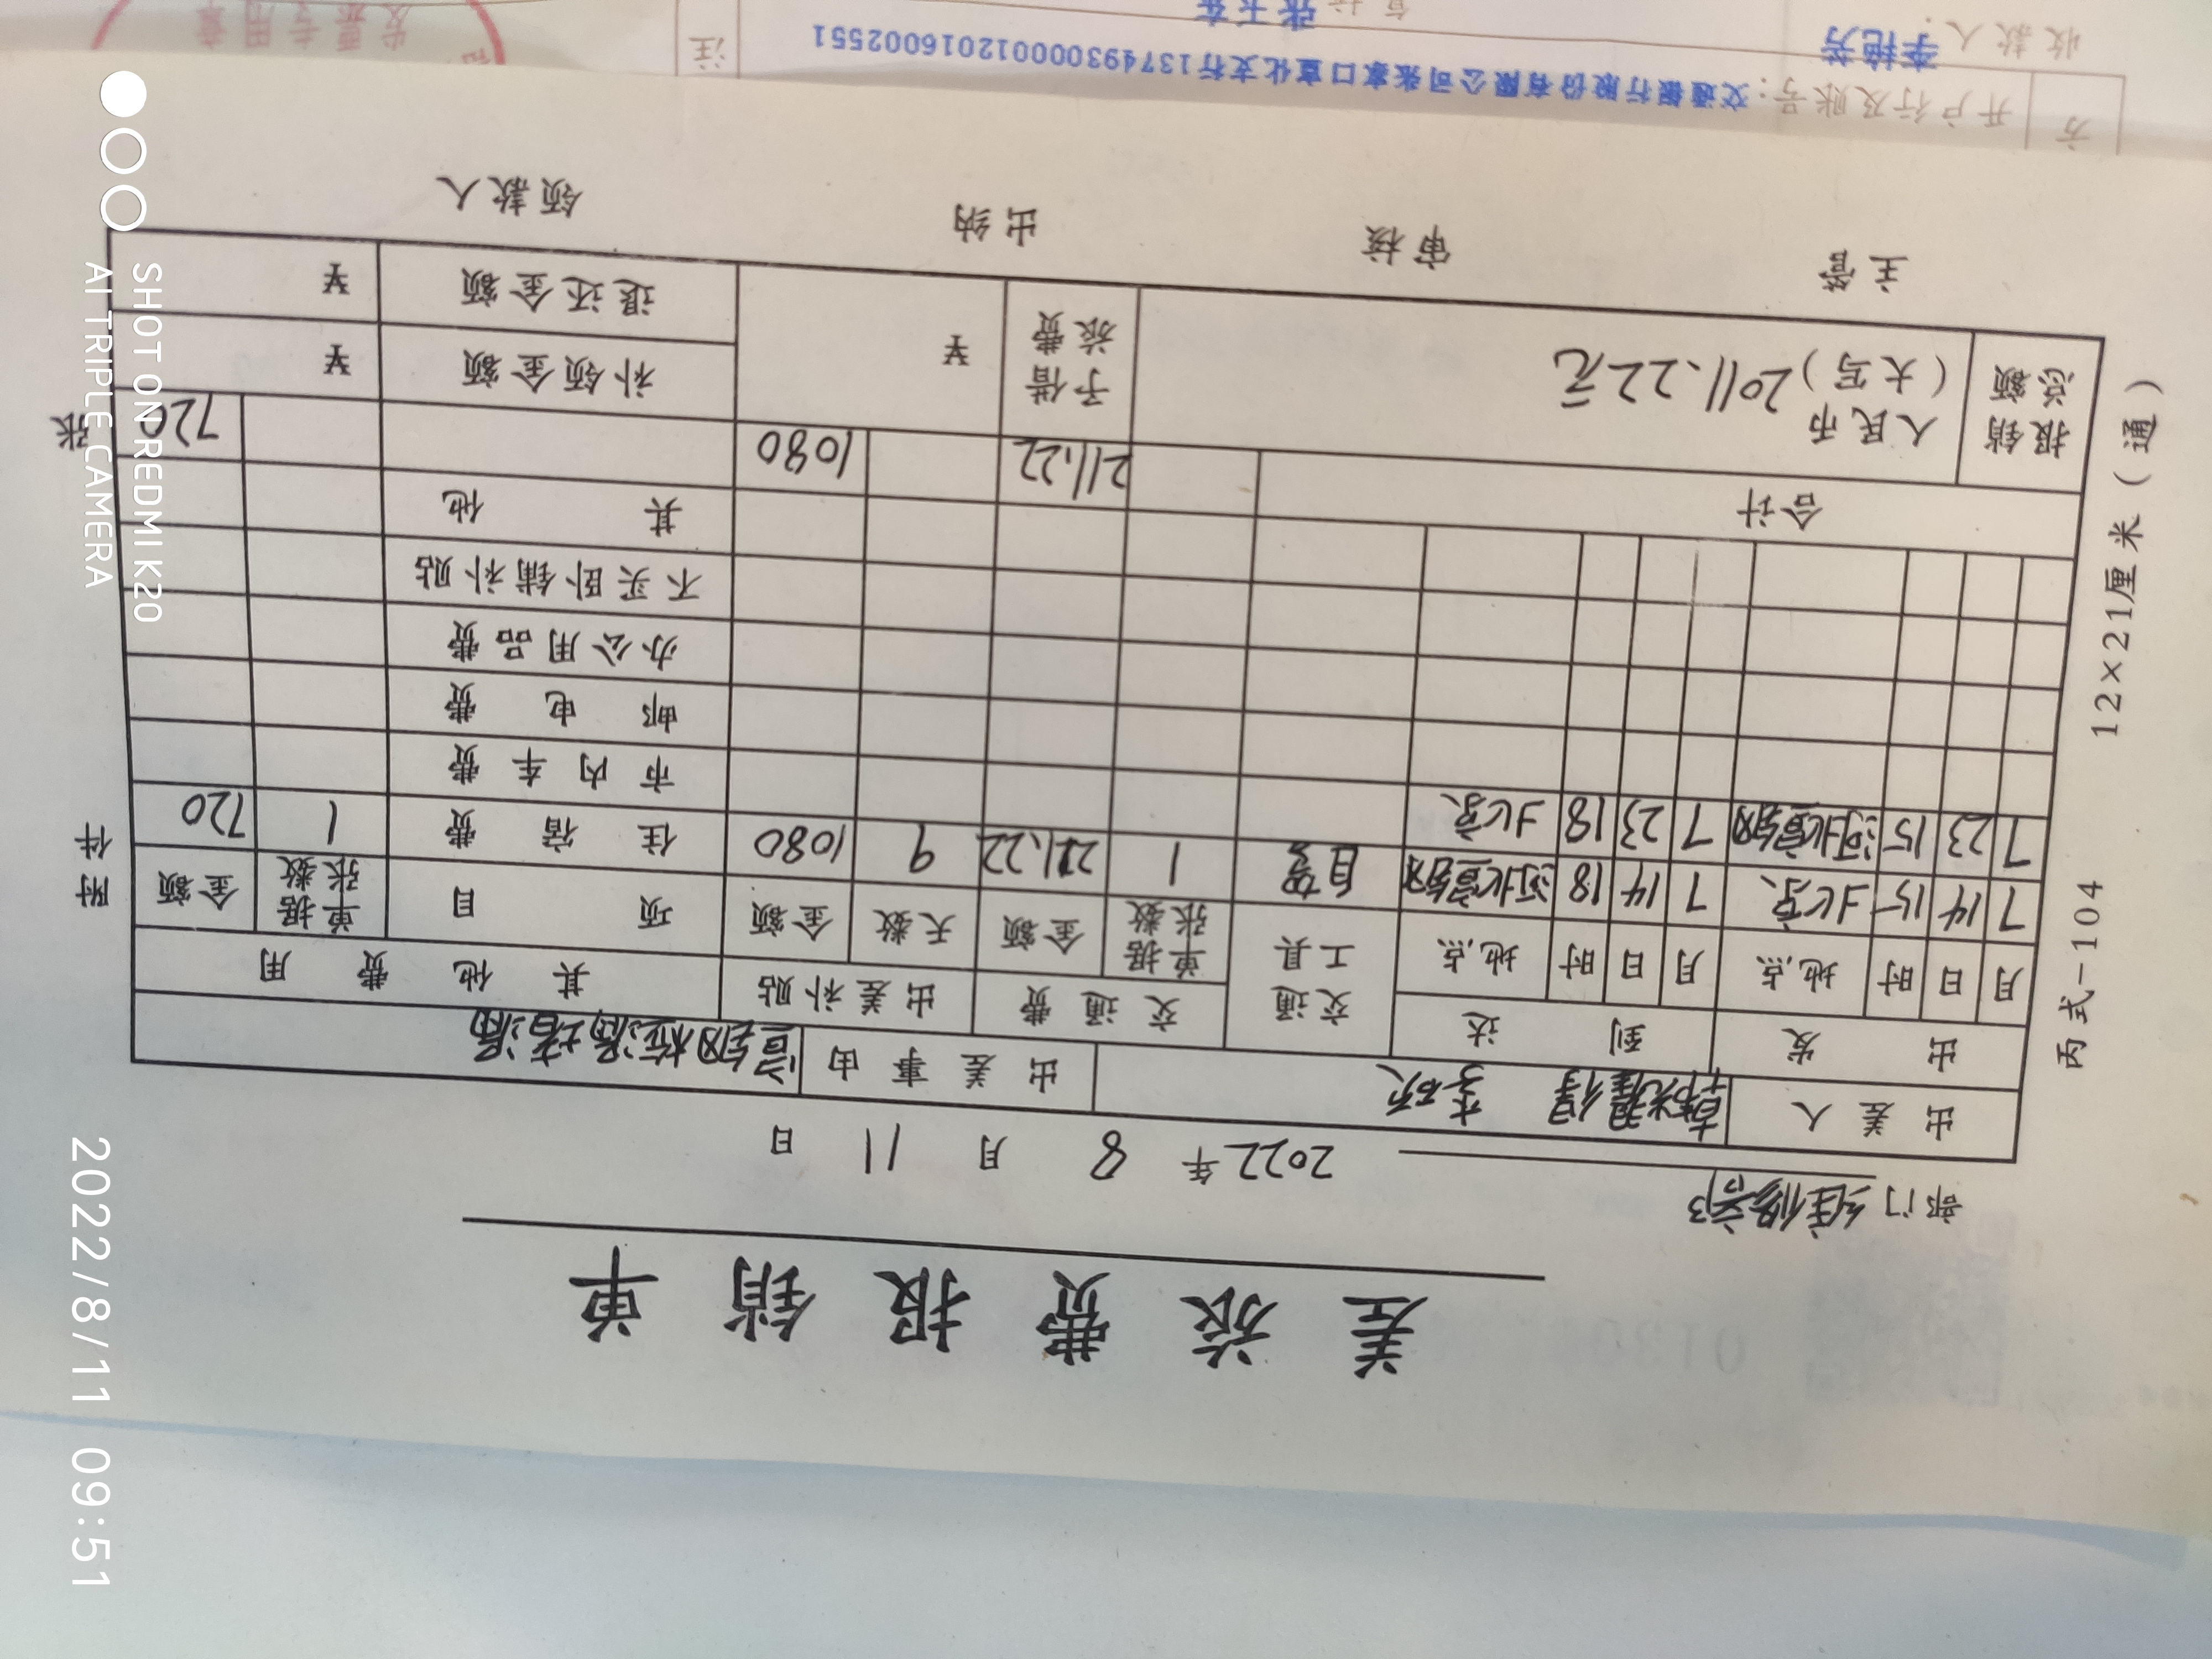 差旅费报销单
部门 维修部 2022年 8月 11日
出差人 李砍 出差事由
出发 到达 交通工具 交通费 出差补贴 其他费用
月 日 时 地点 月 日 时 地点 单据张数 金额 天数 金额 项目 单据张数 金额
7 14 15 北京 7 14 18 河北宣钢 自驾 1 211.22 9 1080 住宿费 1 720
7 23 15 河北宣钢 7 23 18 北京 市内车费
邮电费
办公用品费
不买卧铺补贴
其他
合计 211.22 1080 720
报销总额 人民币（大写）2011.22元 予借旅费 ¥ 补领金额 ¥
退还金额 ¥
主管 审核 出纳 领款人
丙式-104 12×21厘米（通）
附件 张
方 开户行及账号：交通银行股份有限公司张家口宣化支行137493000012016002551
注
收款人：李艳芳
发票专用章
SHOT ON REDMI K20
AI TRIPLE CAMERA
2022/8/11 09:51